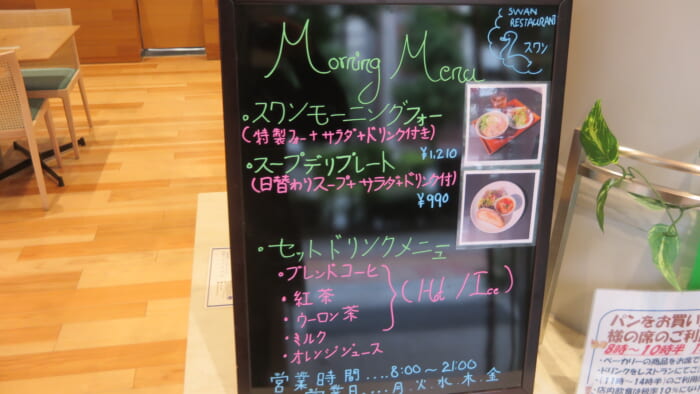 SWAN
RESTAURANT
スワン
Morning Menu
・スワンモーニングフォー
(特製フォー+サラダ+ドリンク付き)
¥1,210
・スープデリプレート
(日替わりスープ+サラダ+ドリンク付)
¥990
・セットドリンクメニュー
・ブレンドコーヒ
・紅茶
・ウーロン茶
(Hot/Ice)
・ミルク
・オレンジジュース
営業時間....8:00~21:00
営業日....月.火.水.木.金
パンをお買い
様の席のご利用
8時~10時半
・ベーカリーの商品をお席で
・ドリンクをレストランにてご
・(11時~14時半)のご利用
店内飲食は税率10%にな